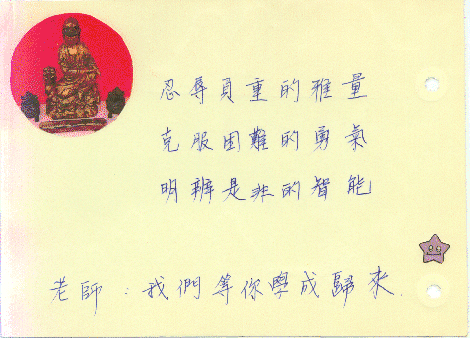 忍辱負重的雅量
克服困難的勇氣
明辨是非的智能
老師：我們等你學成歸來.